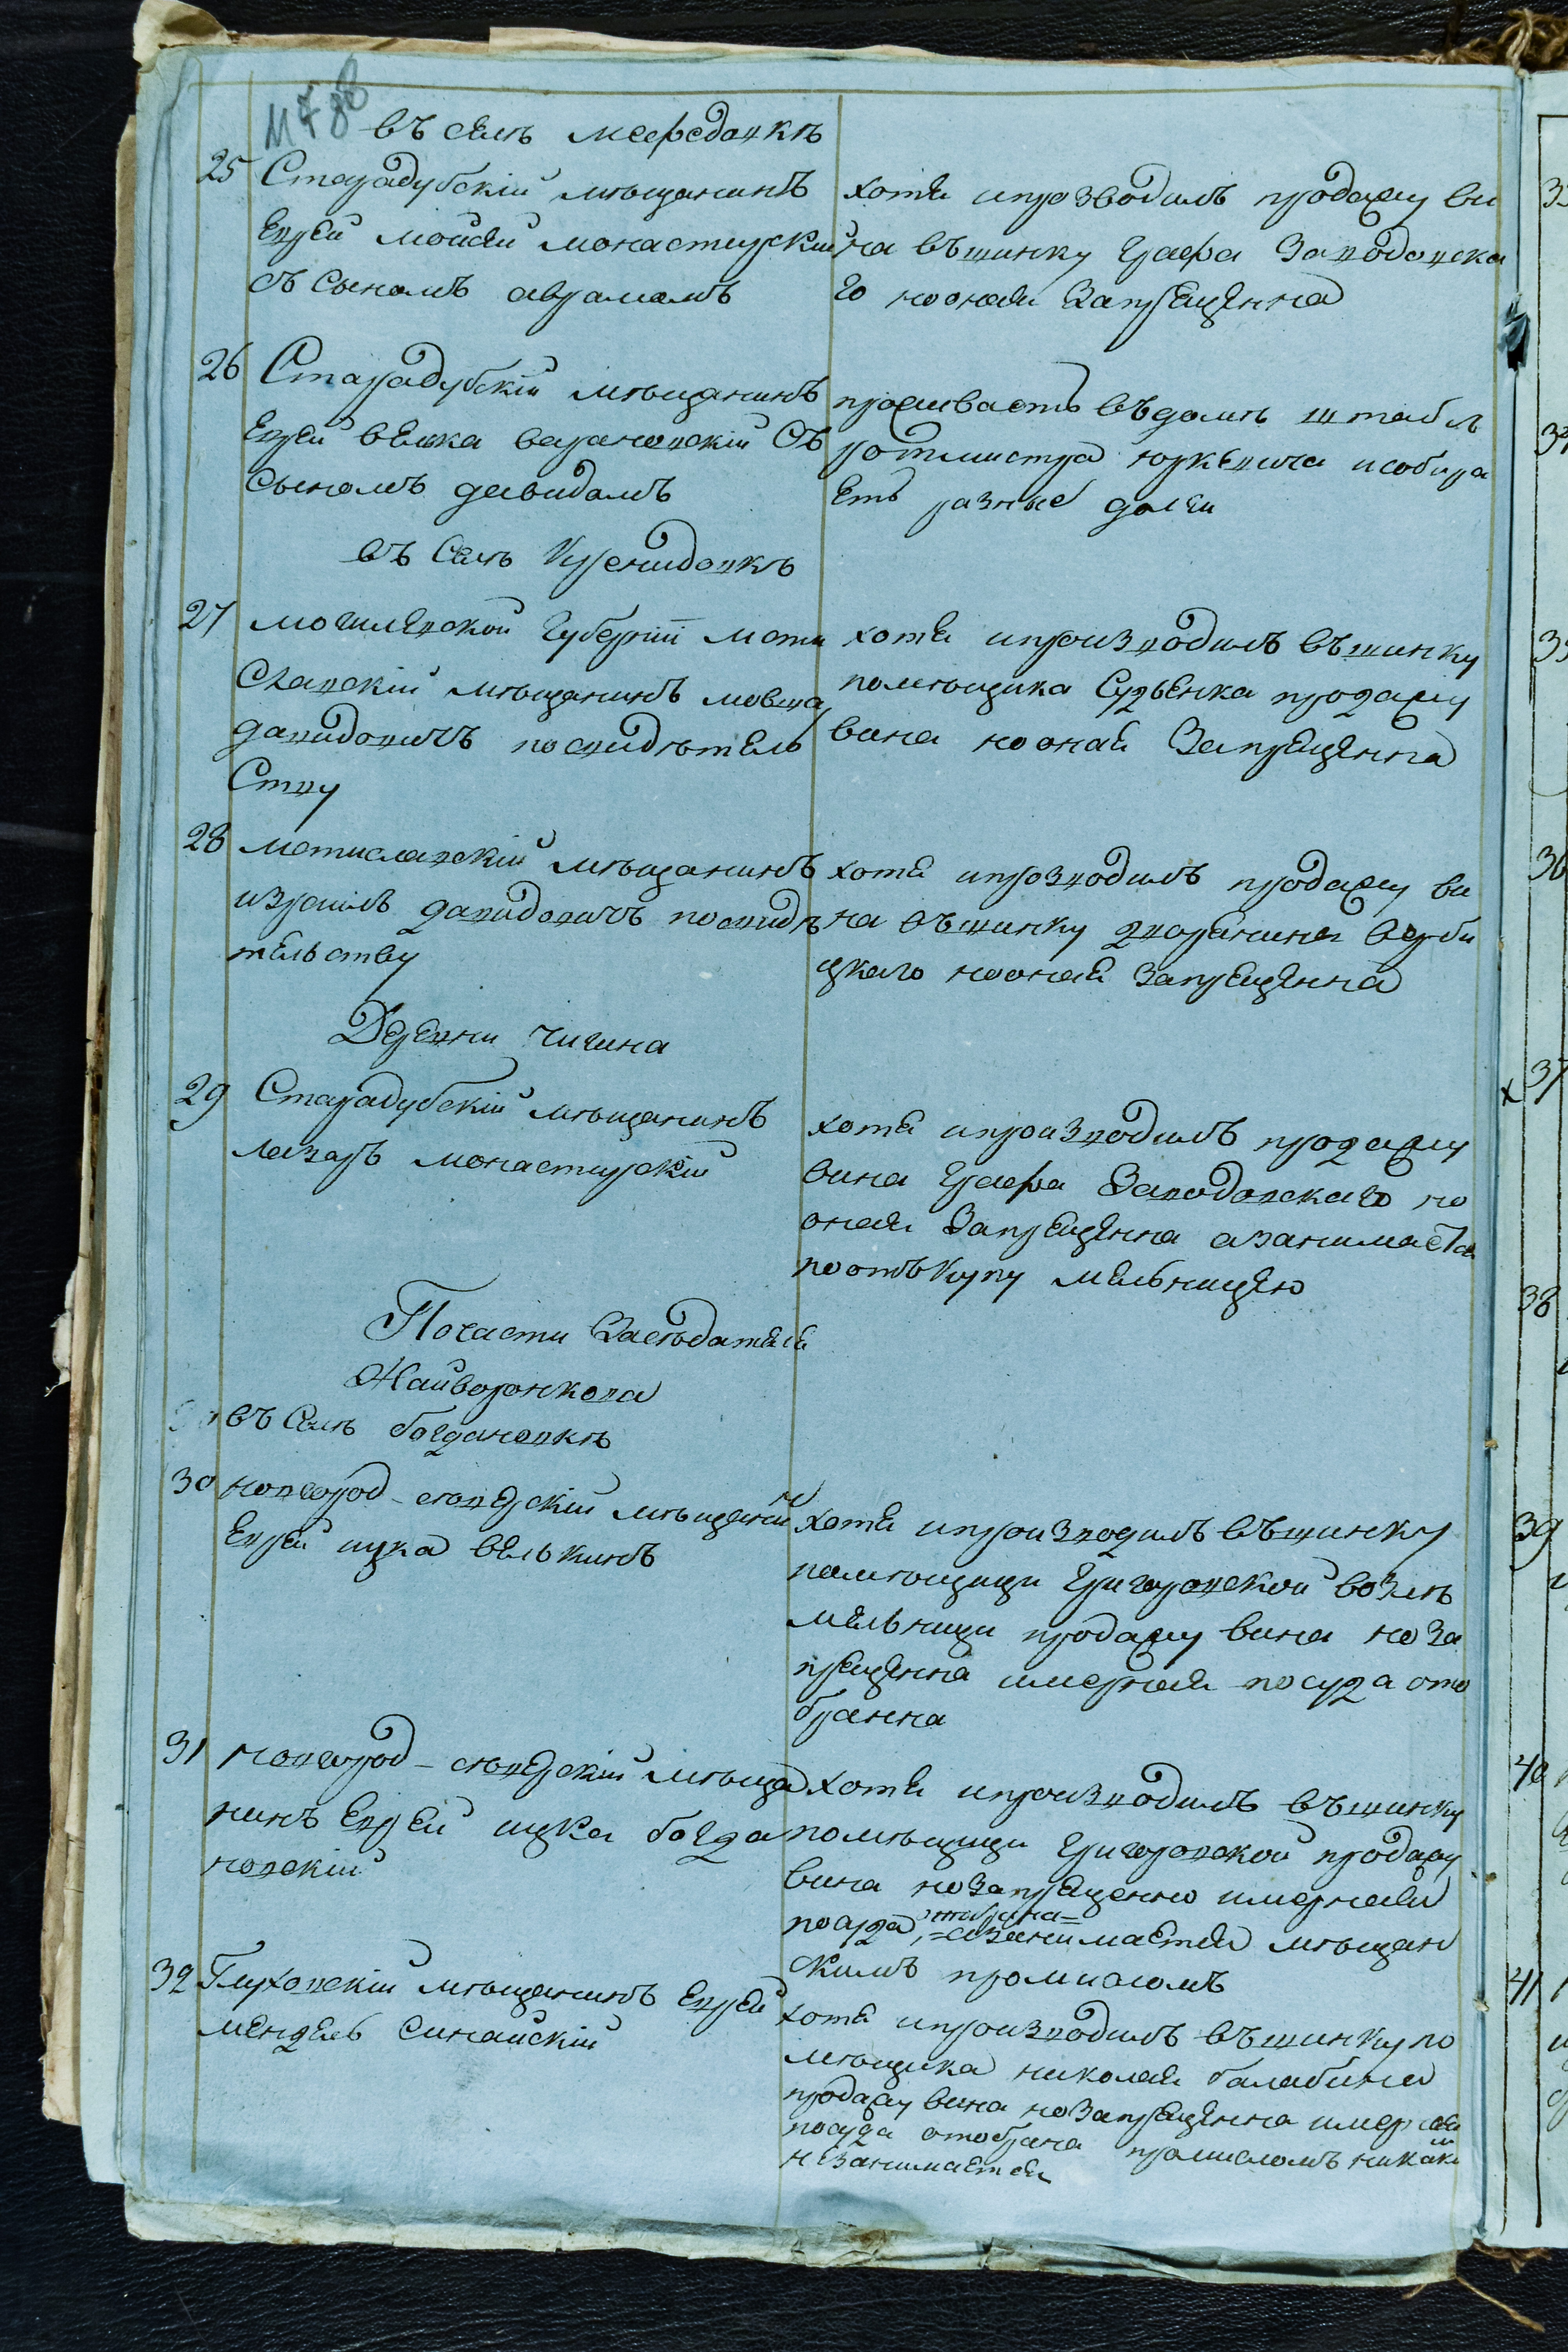 въ селѣ мефедовкѣ
25 Старадубскій мѣщанинъ
Еврей мойсей монастирскій
съ сыномъ аврамомъ
хотя ипрозводилъ продажу ви
на въшинку Графа Заводовска
го нооная Запрещенна
26 Старадубскій мѣщанинъ
Еврей велка варановскій Съ
Сыномъ давидомъ
проживаетъ въдомѣ штабсъ
ротмистра юркевича исобира
Етъ разные долги
въ Селѣ Кренидовкѣ
27 могилевской Губерніи мсти
Славскій мѣщанинъ мовша
давидовичъ посвидѣтель
Ству
хотя ипроизводилъ въшинку
помѣщика Судьенка продажу
вина нооная Запрещенна
28 мстиславскій мѣщанинъ
израиль давидовичъ посвидѣ
тельству
хотя ипрозводилъ продажу ви
на въшинку дворянина верби
цкаго нооная Запрещенна
Деревни чигина
29 Старадубскій мѣщанинъ
лазарь монастирскій
хотя ипроизводилъ продажу
вина Графа Заводовскаго но
оная Запрещенна азанимается
поотъкупу мельницею
Почасти Засѣдателя
Жайворонкова
въ Селѣ богдановкѣ
30 новгород-сѣверскій мѣщанин
Еврей ицка велькинъ
хотя ипроизводилъ въшинку
помѣщици Григоровской возлѣ
мельници продажу вина но За
прещенна имерная посуда ото
бранна
31 новгород-сѣверскій мѣща
нинъ Еврей ицка богда
новскій
хотя ипроизводилъ въшинку
помѣщици Григоровской продажу
вина ноЗапрещенно имерная
посуда, отобрана= =азанимается мѣщан
скимъ промисломъ
32 Глуховскій мѣщанинъ Еврей
мендель Синайскій
хотя ипроизводилъ въшинку по
мѣщика николая балабина
продажу вина ноЗапрещенна имерная
посуда отобрана промисломъ никаки
м
незанимается